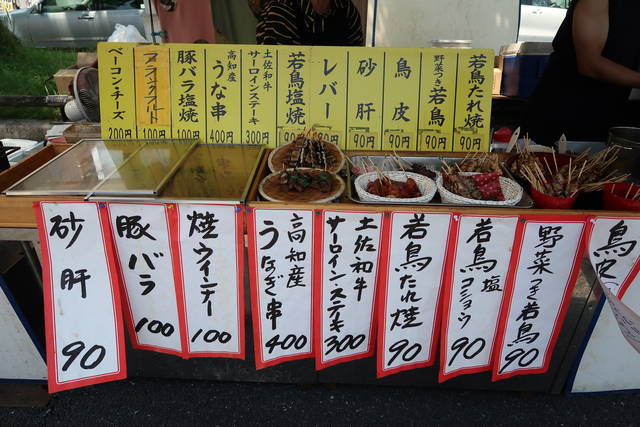 ベーコンチーズ
200円
フランクフルト
100円
豚バラ塩焼
100円
高知産
うな串
400円
土佐和牛
サーロインステーキ
300円
若鳥塩焼
90円
レバー
90円
砂肝
90円
鳥皮
90円
野菜つき
若鳥
90円
若鳥たれ焼
90円
砂肝
90
豚バラ
100
焼ウインナー
100
高知産
うなぎ串
400
土佐和牛
サーロインステーキ
300
若鳥たれ焼
90
若鳥塩
コショウ
90
野菜つき若鳥
90
鳥皮